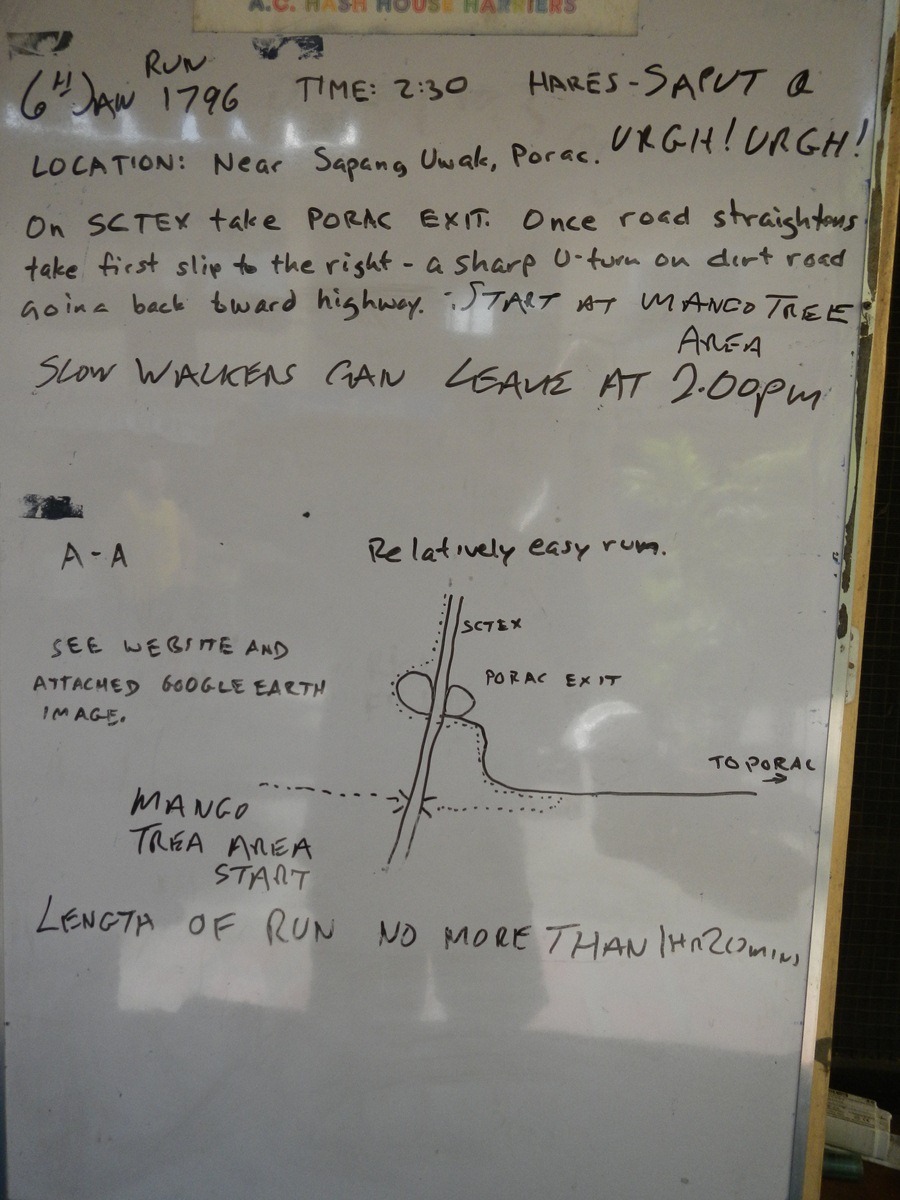 A.C. HASH HOUSE HARRIERS
6TH JAN RUN 1796 TIME: 2:30 HARES-SAPUT &
URGH! URGH!
LOCATION: Near Sapang Uwak, Porac.
On SCTEX take PORAC EXIT. Once road straightens
take first slip to the right - a sharp U-turn on dirt road
going back toward highway. START AT MANGO TREE
AREA
SLOW WALKERS CAN LEAVE AT 2.00pm
A-A
Relatively easy run.
SCTEX
SEE WEBSITE AND
ATTACHED GOOGLE EARTH
IMAGE.
PORAC EXIT
TO PORAC
MANGO
TREA AREA
START
LENGTH OF RUN NO MORE THAN 1HR20MINS